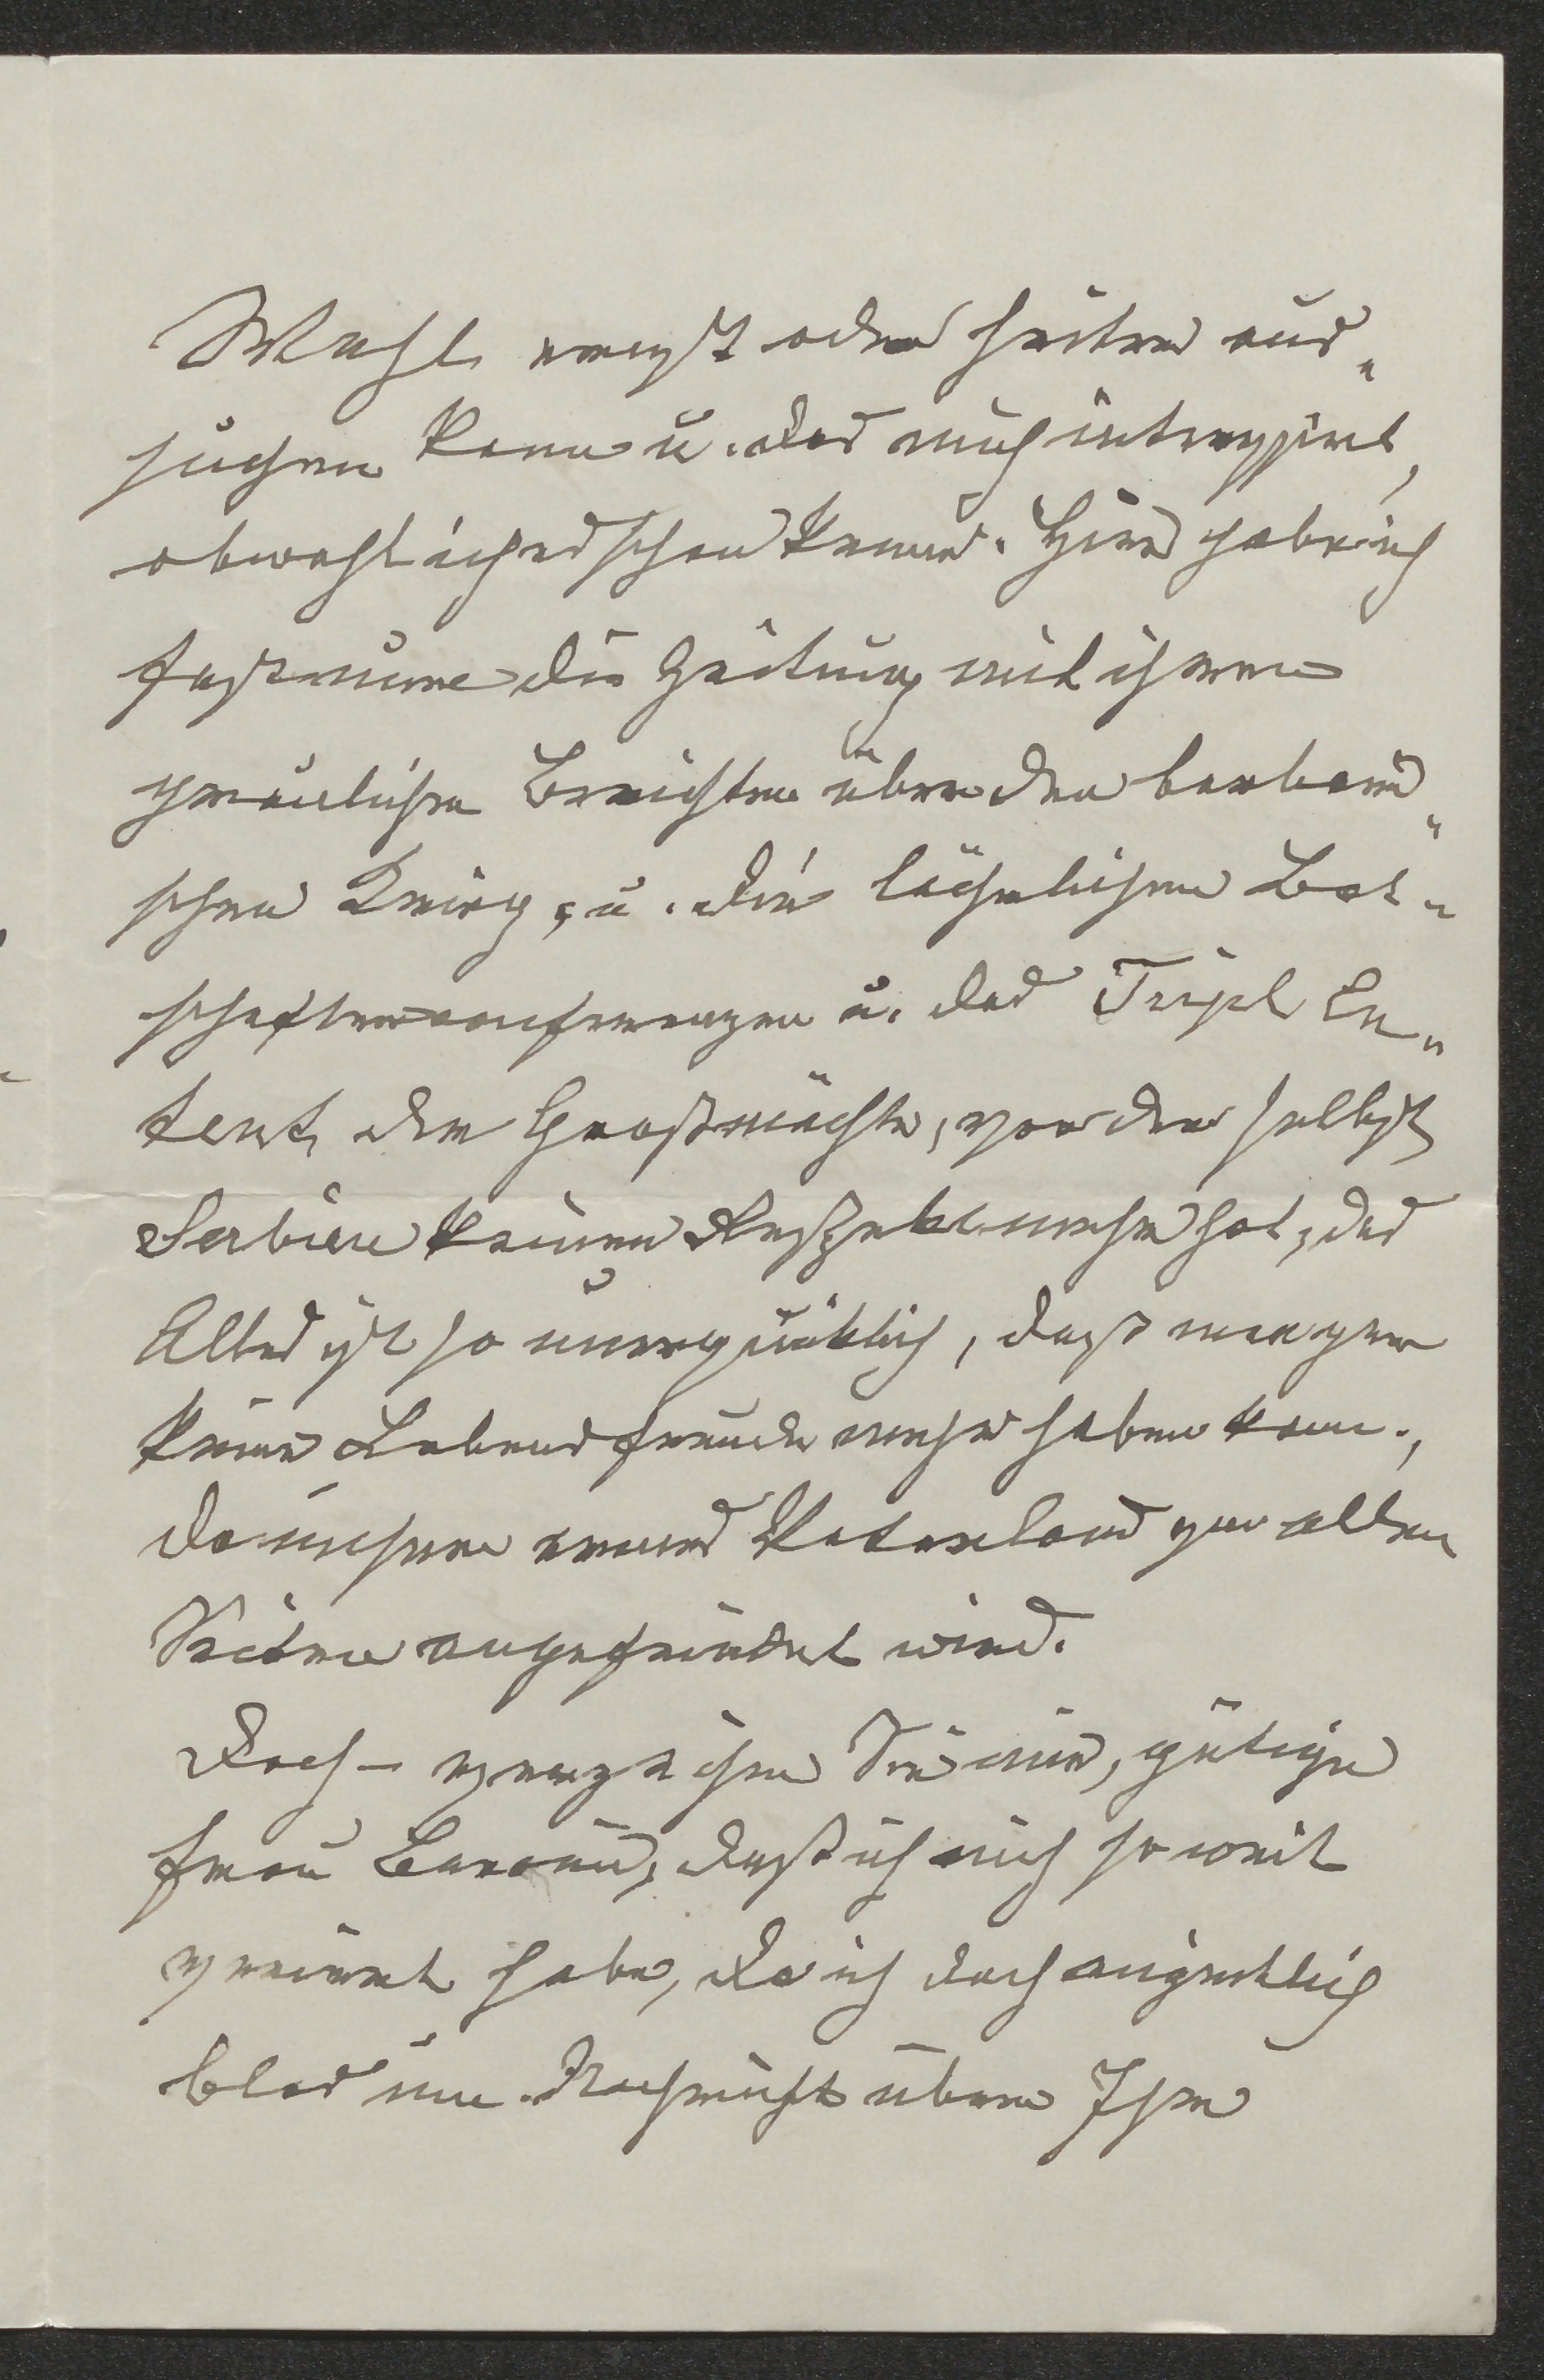 Wahl ernst oder heiter aus„
suchen kann u. das mich interessirt,
obwohl ich es schon kenne. Hier habe ich
fast nur die Zeitung mit ihren
greulichen Berichten über den barbari„
schen Krieg, u. die lächerlichen Bot„
schafterconferenzen u. das Tripl En„
tent, der Großmächte, vor der selbst
Serbien keinen Respekt mehr hat, das
Alles ist so unerquicklich, dass man gar
keine Lebensfreude mehr haben kann.,
da unser armes Vaterland von allen
Seiten angefeindet wird.
Doch – verzeihen Sie mir, gütige
Frau Baronin, dass ich mich so weit
verirrt habe, da ich doch eigentlich
blos um Nachricht über Ihr